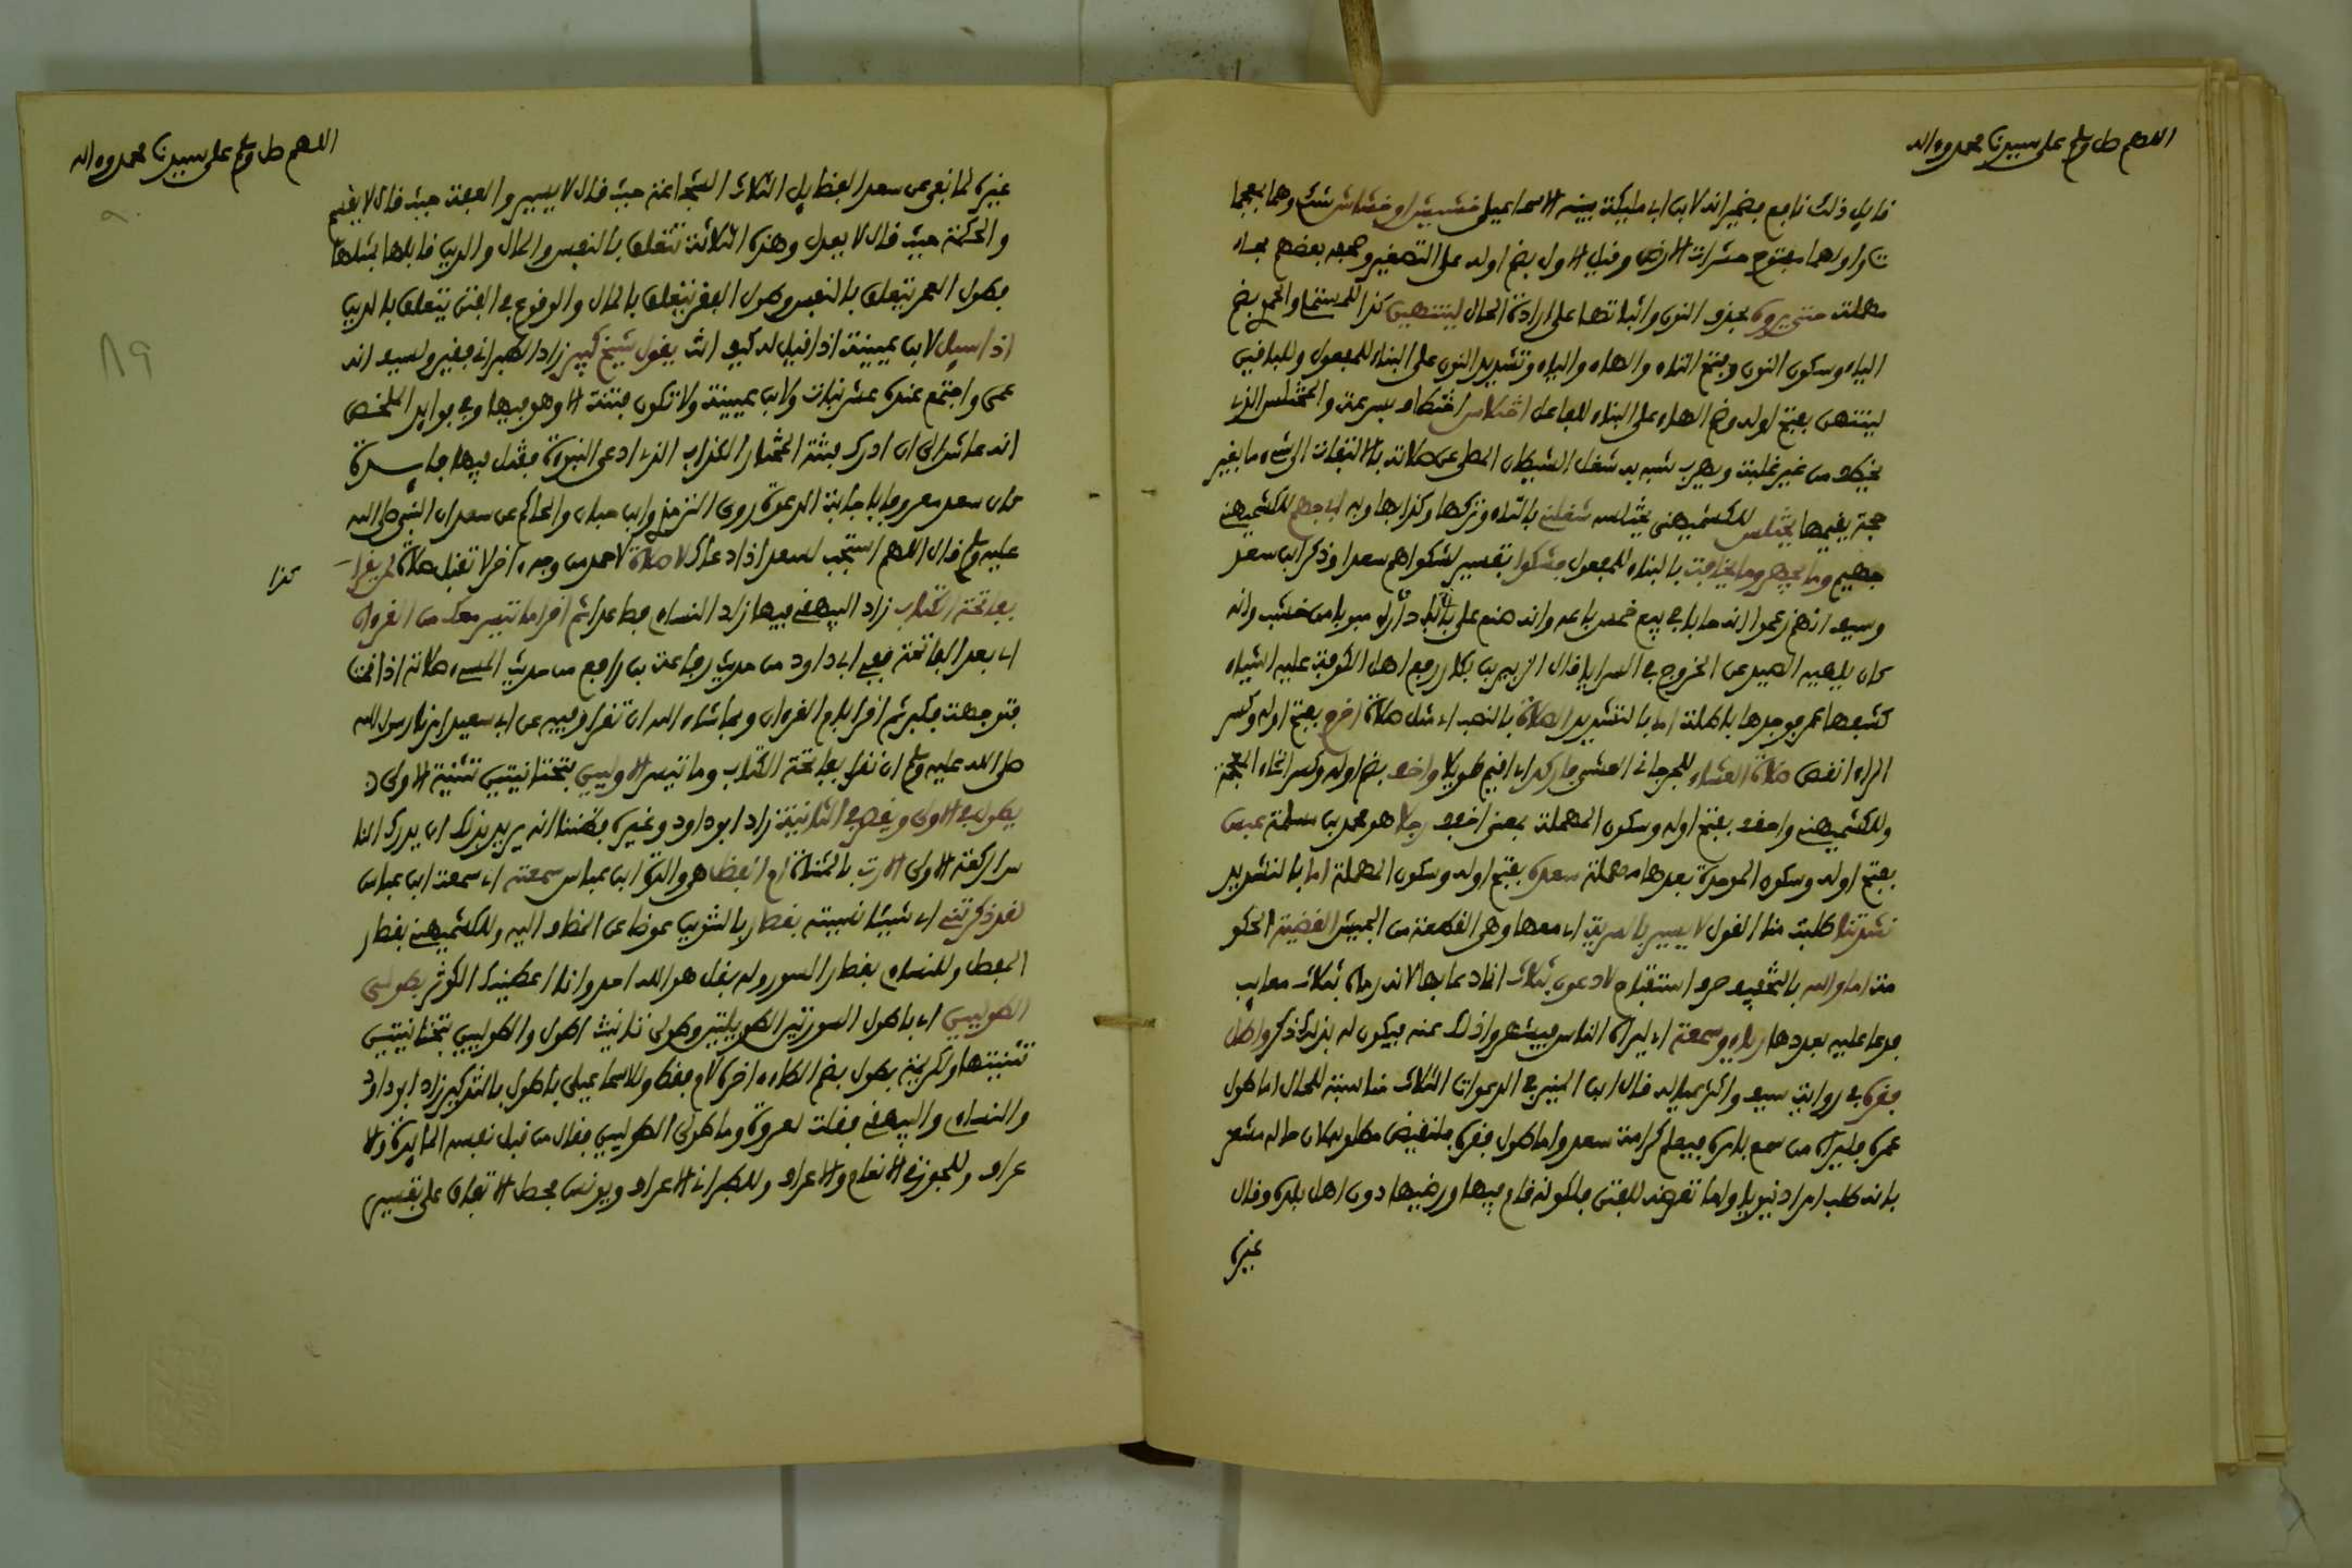 اللهم صل وسلم على سيدنا محمد وءاله
قايل ذلك نافع بضمير انه لابن ابي مليكة بينه الاسماعيلي خشيش او خشاش شك وهما بمعجمات
واولهما مفتوح حشرات الارض وقيل الاول بضم اوله على التصغير وصحفه بعضهم بحاء
مهملة حتى يروى بحذف النون واثباتها على ارادة الحال لينتهين كذا للمستملي والحموي بضم
الياء وسكون النون وفتح التاء والهاء والياء وتشديد النون على البناء للمفعول وللباقين
لينتهن بفتح اوله وضم الهاء على البناء للفاعل اختلاس اختطاف بسرعة والمختلس الذي
يخطف من غير غلبة ويهرب شبه به شغل الشيطان المصلي عن صلاته بالالتفات الى شيء ما بغير
حجة يقيمها يختلس للكشميهني يختلسه شغلني بالتاء وتركها وكذا بها وبه ابي جهم للكشميهني
جهيم وما يجهر وما يخافت بالبناء للمفعول فشكوا تفسير لشكواهم سعدا وذكر ابن سعد
وسيف انهم زعموا انه حابى في بيع خمس باعه وانه صنع على باب داره مبوبا من خشب وانه
كان يلهيه الصيد عن الخروج في السرايا قال الزبير بن بكار رفع اهل الكوفة عليه اشياء
كشفها عمر فوجدها باطلة اما بالتشديد الصلاة بالنصب اي مثل صلاة اخرم بفتح اوله وكسر
الراء انقص صلاة العشاء للجرجاني العشي فاركد اي اقيم طويلا واخف بضم اوله وكسر الخاء المعجمة
وللكشميهني واحذف بفتح اوله وسكون المهملة بمعنى اخفف رجلا هو محمد بن مسلمة عبس
بفتح اوله وسكون الموحدة بعدها مهملة سعدة بفتح اوله وسكون المهملة اما بالتشديد
نشدتنا طلبت منا القول لا يسير بالسرية اي معها وهي القطعة من الجيش القضية الحكومة
اما والله بالتخفيف حرف استفتاح لادعون بثلاث انما دعا بها لانه رماه بثلاث معايب
فدعا عليه بعددها رياء وسمعة اي ليراه الناس فيشهروا ذلك عنه فيكون له بذلك ذكر واطل
فقره في رواية سيف واكثر عياله قال ابن المنير في الدعوات الثلاث مناسبة للحال اما طول
عمره فليراه من سمع بامره فيعلم كرامة سعد واما طول فقره فلنقيض مطلوبه لان حاله مشعر
بانه طلب امرا دنيويا واما تعرضه للفتن فلكونه قام فيها ورضيها دون اهل بلده وقال
غيره
اللهم صل وسلم على سيدنا محمد وءاله
غيره لما نفى عن سعد الفضايل الثلاث الشجاعة حيث قال لا يسير والعفة حيث قال لا يقسم
والحكمة حيث قال لا يعدل وهذه الثلاثة تتعلق بالنفس والمال والدين قابلها بمثلها
فطول العمر يتعلق بالنفس وطول الفقر يتعلق بالمال والوقوع في الفتن يتعلق بالدين
اذا سيل لابن عيينة اذا قيل له كيف انت يقول شيخ كبير زاد الطبراني فقير ولسيف انه
عمي واجتمع عنده عشر بنات ولابن عيينة ولا تكون فتنة الا وهو فيها وفي فوايد المخلص
انه عاش الى ان ادرك فتنة المختار الكذاب الذي ادعى النبوة فقتل فيها فايسدة
كان سعد معروفا باجابة الدعوة روى الترمذي وابن حبان والحاكم عن سعد ان النبي صلى الله
عليه وسلم قال اللهم استجب لسعد اذا دعاك لا صلاة لاحمد من وجه ءاخر لا تقبل صلاة لم يقرا
كذا
بفاتحة الكتاب زاد البيهقي فيها زاد النساءي فصاعدا ثم اقرا ما تيسر معك من القرءان
اي بعد الفاتحة ففي ابي داود من حديث رفاعة بن رافع من حديث المسيء صلاته اذا قمت
فتوجهت فكبر ثم اقرا بام القرءان وبما شاء الله ان تقرا وفيه عن ابي سعيد امرنا رسول الله
صلى الله عليه وسلم ان نقرا بفاتحة الكتاب وما تيسر الاوليين بتحتانيتين تثنية الاولى
يطول في الاولى ويقصر في الثانية زاد ابو داود وغيره فظننا انه يريد بذلك ان يدرك الناس
الركعة الاولى الارت بالمثناة ام الفضل هي والدة ابن عباس سمعته اي سمعت ابن عباس
لقد ذكرتني اي شيئا نسيته بقصار بالتنوين عوضا عن المضاف اليه وللكشميهني بقصار
المفصل وللنساءي بقصار السور وله بقل هو الله احد وانا اعطيناك الكوثر بطولى
الطوليين اي باطول السورتين الطويلتين وطولى تانيث اطول والطوليين بتحتانيتين
تثنيتها ولكريمة بطول بضم الطاء ءاخره لام فقط وللاسماعيلي باطول بالتذكير زاد ابو داود
والنساءي والبيهقي فقلت لعروة وما طولى الطوليين فقال من قبل نفسه المايدة ولا
عراف وللجوزقي الانعام والاعراف وللطبراني الاعراف ويونس فحصل الاتفاق على تفسير